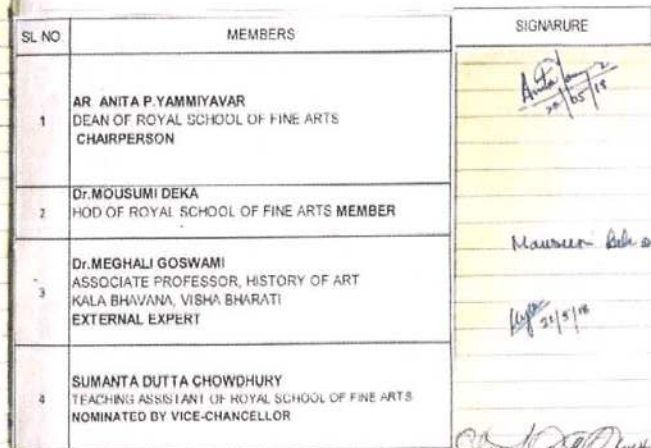 SL NO MEMBERS SIGNARURE
1 AR. ANITA P.YAMMIYAVAR
DEAN OF ROYAL SCHOOL OF FINE ARTS
CHAIRPERSON
2 Dr.MOUSUMI DEKA
HOD OF ROYAL SCHOOL OF FINE ARTS MEMBER
3 Dr.MEGHALI GOSWAMI
ASSOCIATE PROFESSOR, HISTORY OF ART
KALA BHAVANA, VISHA BHARATI
EXTERNAL EXPERT
21/5/18
4 SUMANTA DUTTA CHOWDHURY
TEACHING ASSISTANT OF ROYAL SCHOOL OF FINE ARTS
NOMINATED BY VICE-CHANCELLOR